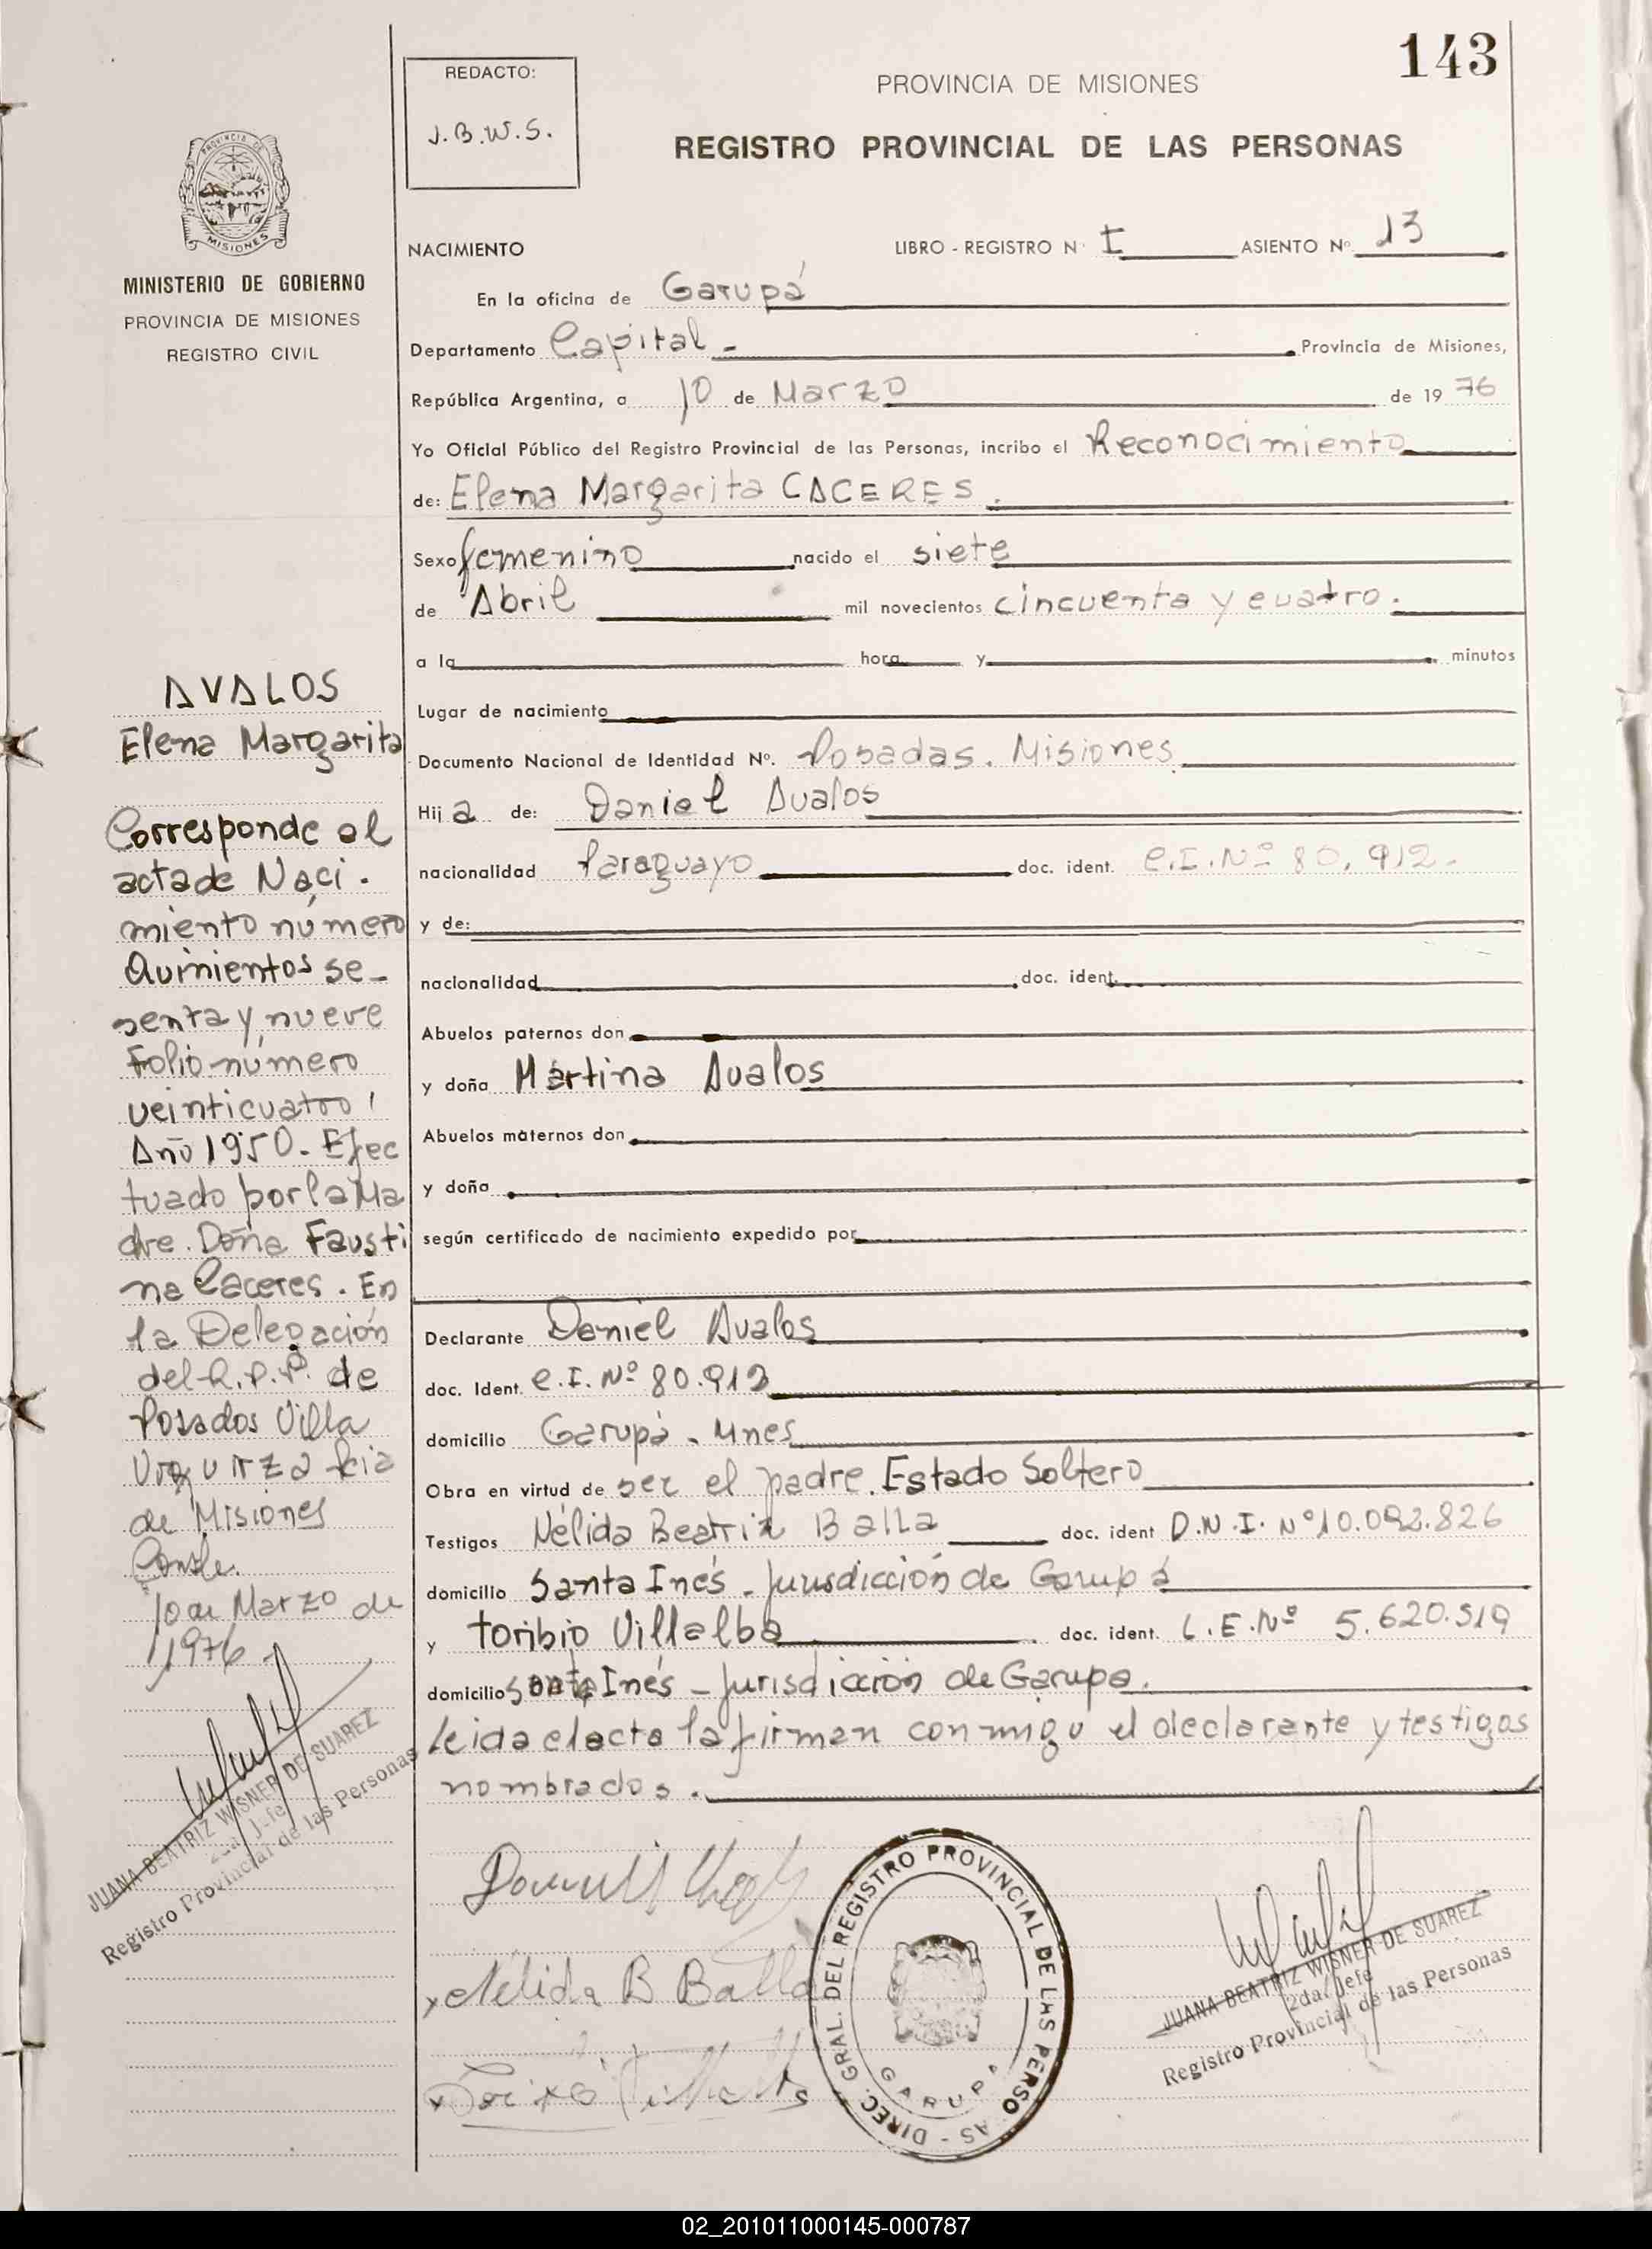 143
REDACTO:
J.B.W.S.
PROVINCIA DE MISIONES
REGISTRO PROVINCIAL DE LAS PERSONAS
PROVINCIA DE
MISIONES
MINISTERIO DE GOBIERNO
PROVINCIA DE MISIONES
REGISTRO CIVIL
NACIMIENTO LIBRO - REGISTRO N I ASIENTO Nº 13
En la oficina de Garupá
Departamento Capital - Provincia de Misiones,
República Argentina, a 10 de Marzo de 19 76
Yo Oficial Público del Registro Provincial de las Personas, incribo el Reconocimiento
de: Elena Margarita CACERES.
Sexo femenino nacido el siete
de Abril mil novecientos cincuenta y cuatro.
a la hora y minutos
Lugar de nacimiento
Documento Nacional de Identidad Nº. Posadas. Misiones
Hij a de: Daniel Avalos
nacionalidad Paraguayo doc. ident. C.I.Nº 80.912.
y de:
nacionalidad doc. ident.
Abuelos paternos don
y doña Martina Avalos
Abuelos maternos don
y doña
según certificado de nacimiento expedido por
Declarante Daniel Avalos
doc. Ident. C.I. Nº 80.912
domicilio Garupá - Mnes
Obra en virtud de ser el padre. Estado Soltero
Testigos Nélida Beatriz Balla doc. ident D.N.I. Nº 10.092.826
domicilio Santa Inés - Jurisdicción de Garupá
y Toribio Villalba doc. ident. L.E.Nº 5.620.519
domicilio Santa Inés - Jurisdicción de Garupa.
Leida el acta la firman conmigo el declarante y testigos
nombrados.
AVALOS
Elena Margarita
Corresponde al
acta de Naci.
miento número
Quinientos se-
senta y nueve
Folio número
veinticuatro
Año 1950. Efec
tuado por la Ma
dre. Doña Fausti
na Caceres. En
la Delegación
del R.P.P. de
Posadas Villa
Urquiza Pcia
de Misiones
Conste.
10 de Marzo de
1976
JUANA BEATRIZ WISNER DE SUAREZ
2da. Jefe
Registro Provincial de las Personas
Nélida B Balla
DIREC. GRAL. DEL REGISTRO PROVINCIAL DE LAS PERSO AS -
GARUPA
JUANA BEATRIZ WISNER DE SUAREZ
2da. Jefe
Registro Provincial de las Personas
02_201011000145-000787